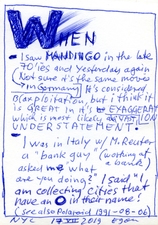 WHEN
I saw MANDINGO in the late
70'ies and yesterday again
Not sure it's the same movie
→ in Germany) It's considered
B(ox)ploitation, but i think it
is GREAT in it's EXAGGERATION
which is most likely
UNDERSTATEMENT!
I was in Italy w/ M. Reuter
a "bank guy" (working at
a bank)
asked me what
are you doing?" I said "I
am collecting cities that
have an O in their name!
(see also Polaroid 1991-08-06)
NYC 17 VII 2019